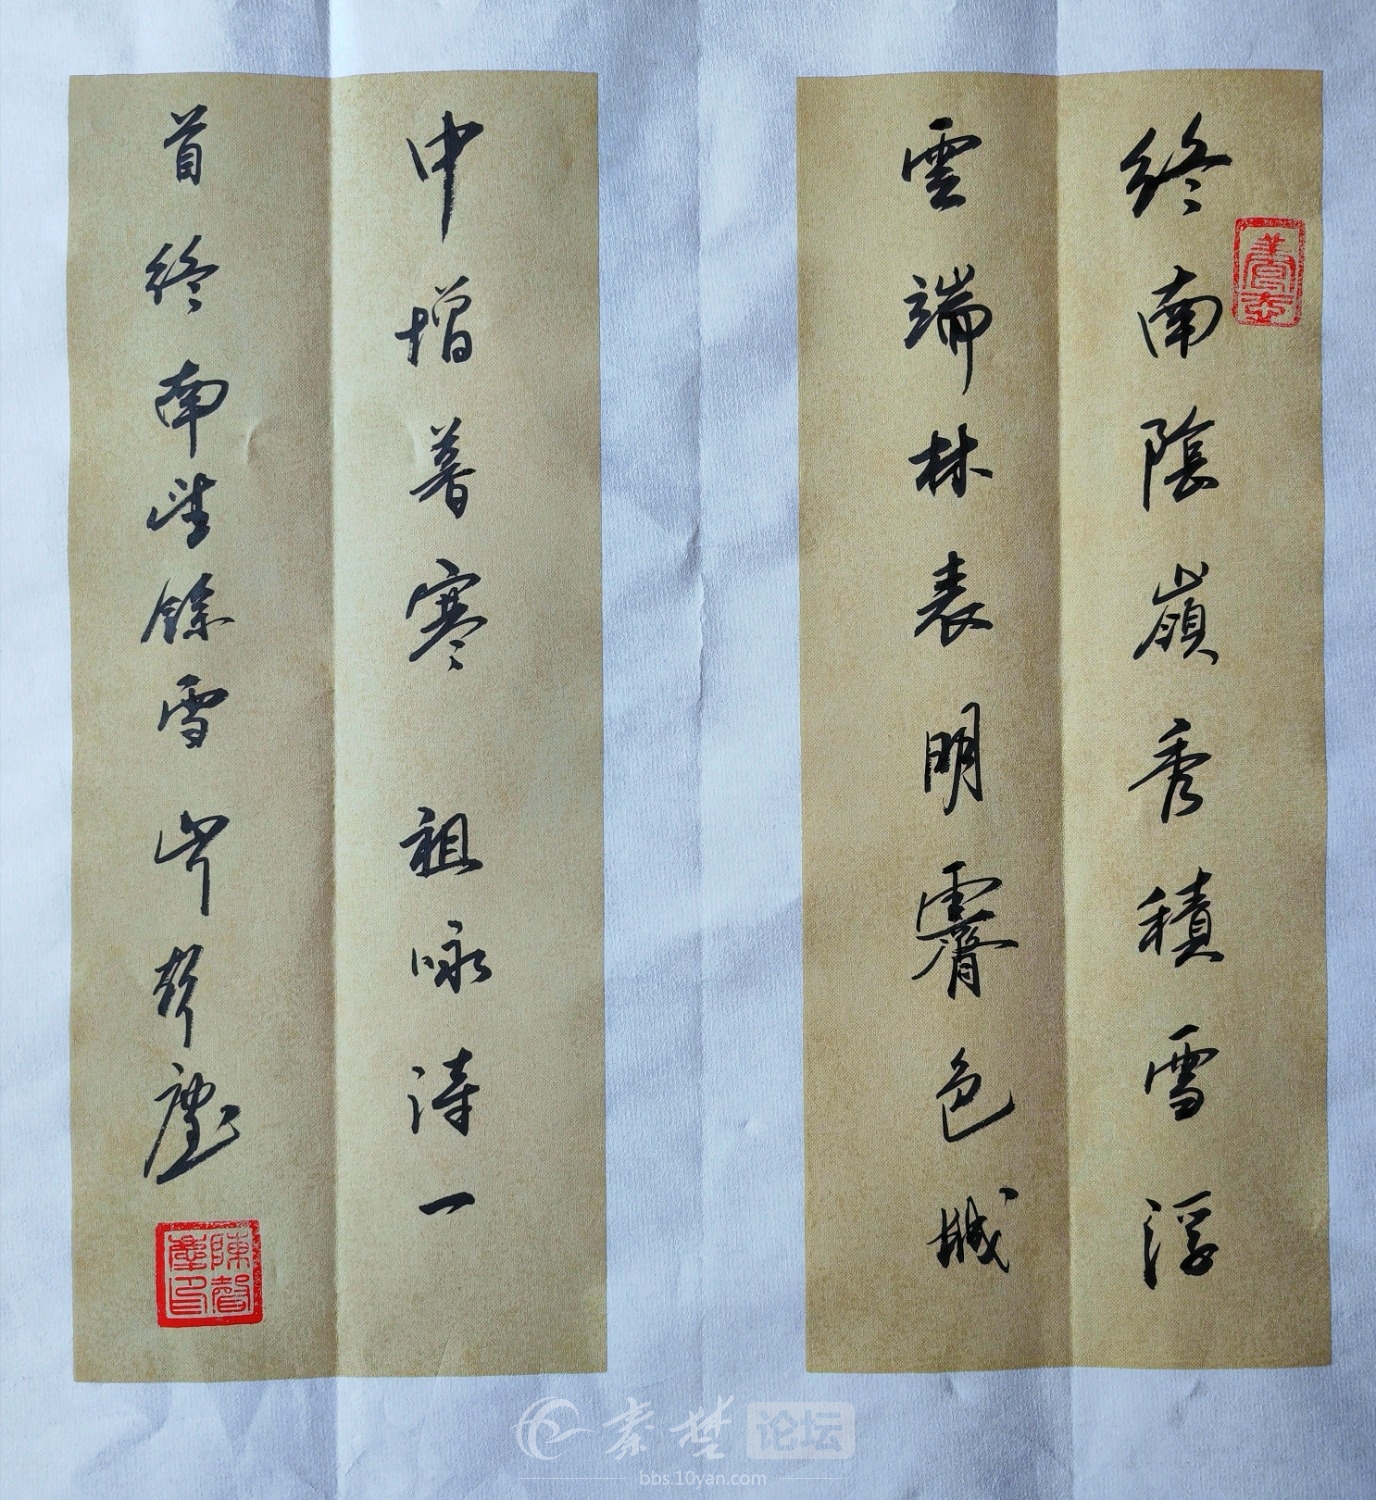 終南陰嶺秀積雪浮
雲端林表明霽色城
中增暮寒 祖咏詩一
首終南望餘雪 聲
秦楚论坛
bbs.10yan.com